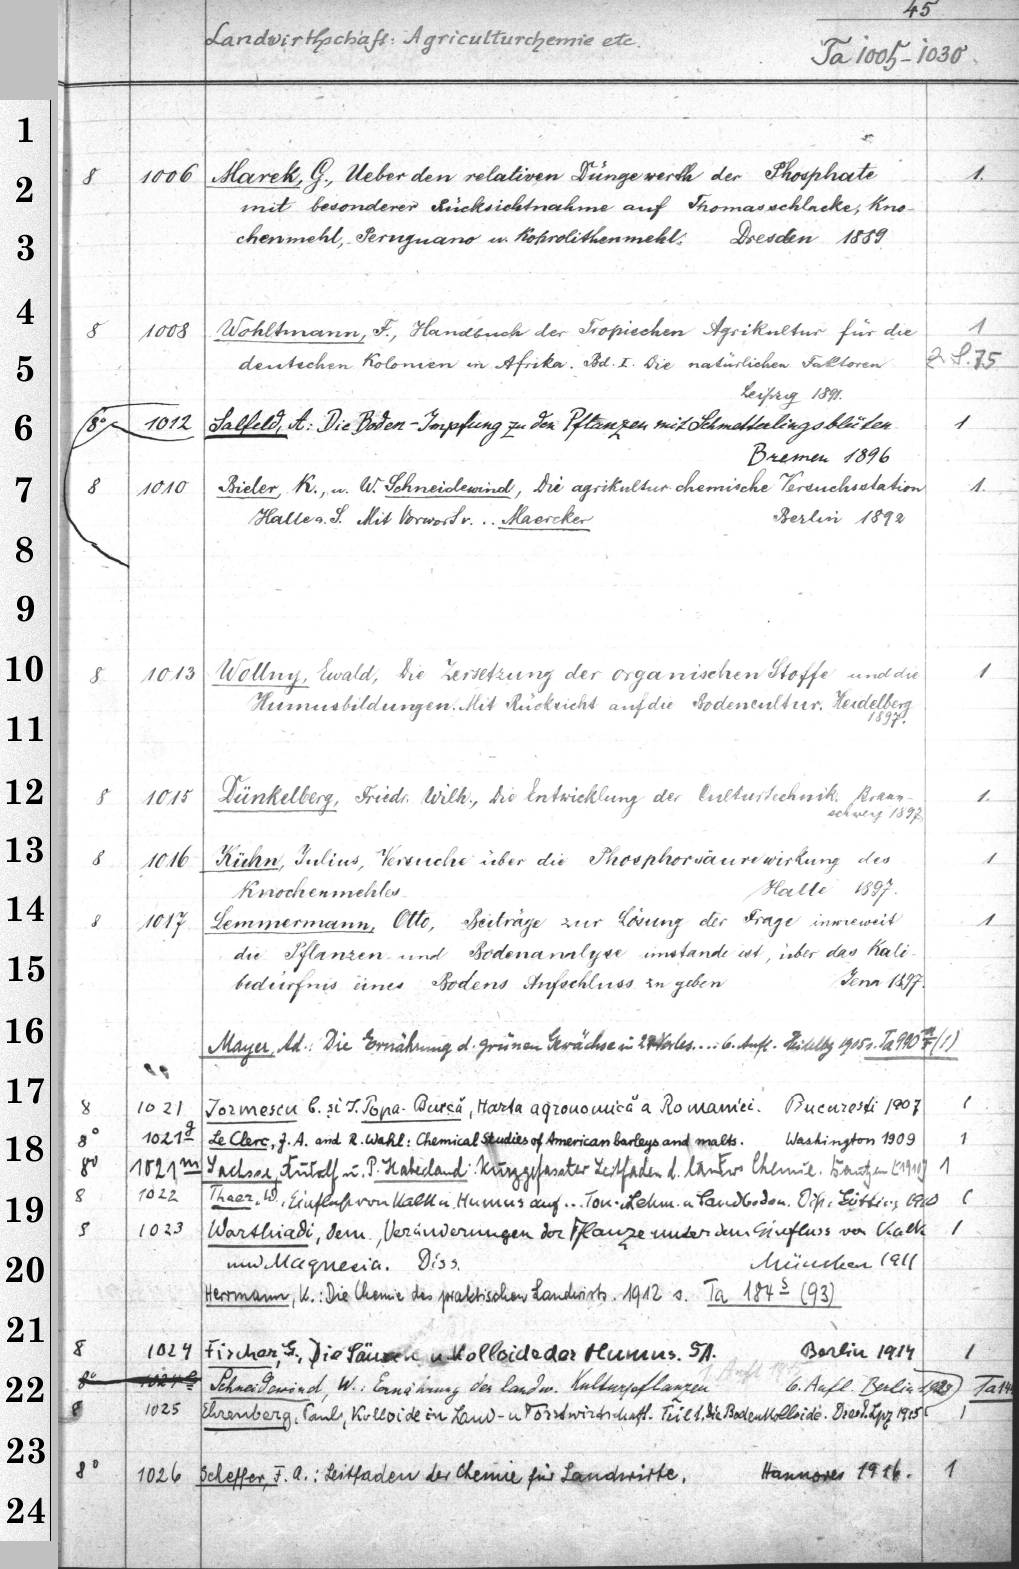 45
Landwirthschaft: Agriculturchemie etc.
Ta 1005-1030
1
2
8 1006 Marek, G., Ueber den relativen Düngewerth der Phosphate 1.
mit besonderer Rücksichtnahme auf Thomasschlacke, Kno-
3
chenmehl, Peruguano u. Koprolithenmehl. Dresden 1889
4
8 1008 Wohltmann, F., Handbuch der Tropischen Agrikultur für die 1
5
deutschen Kolonien in Afrika. Bd. I. Die natürlichen Faktoren 2 S. 75
Leipzig 1891.
6
8° 1012 Salfeld, A: Die Boden-Impfung zu den Pflanzen mit Schmetterlingsblüten 1
Bremen 1896
7
8 1010 Bieler, K., u. W. Schneidewind, Die agrikultur-chemische Versuchsstation 1.
Halle a. S. Mit Vorwort v. .. Maercker Berlin 1892
8
9
10
8 1013 Wollny, Ewald, Die Zersetzung der organischen Stoffe und die 1
11
Humusbildungen. Mit Rücksicht auf die Bodencultur. Heidelberg
1897.
12
8 1015 Dünkelberg, Friedr. Wilh., Die Entwicklung der Culturtechnik. Braun- 1.
schweig 1897
13
8 1016 Kühn, Julius, Versuche über die Phosphorsäurewirkung des 1
Knochenmehles Halle 1897.
14
8 1017 Lemmermann, Otto, Beiträge zur Lösung der Frage inwieweit 1
15
die Pflanzen und Bodenanalyse imstande ist, über das Kali-
bedürfnis eines Bodens Aufschluss zu geben Jena 1897.
16
Mayer, Ad.: Die Ernährung d. grünen Gewächse in 6. Aufl. 1905 s. Ta 990 (1)
17
8 1021 C. si I. Popa-Burcă, Harta agronomică a Romaniei. Bucuresti 1907 1
18
8° 1021g Le Clerc, J. A. and R. Wahl: Chemical Studies of American barleys and malts. Washington 1909 1
8° 1021m Sachsse, Rudolf u. P. Haberland: Kurzgefasster Leitfaden d. Chemie. 1
19
8 1022 Thaer, W. Einfluß von Kalk u. Humus auf ... Ton-, Lehm- u. Sandboden. Diss. 1910 1
8 1023 Warthiadi, Dem., Veränderungen der Pflanze unter dem Einfluss von Kalk 1
20
und Magnesia. Diss. München 1911
Herrmann, K.: Die Chemie des praktischen Landwirts. 1912 s. Ta 184s (93)
21
8 1024 Fischer, G., Die Säuren u. Kolloide des Humus. SA. Berlin 1914 1
22
8° Schneidewind, W.: Ernährung der landw. Kulturpflanzen 6. Aufl. Berlin Ta
8 1025 Ehrenberg, Paul, Kolloide in Land- u Forstwirtschaft. Teil 1, Die Bodenkolloide. Dresd. Lpz 1915 1
23
8° 1026 Scheffer, F. A.: Leitfaden der Chemie für Landwirte. Hannover 1916. 1
24